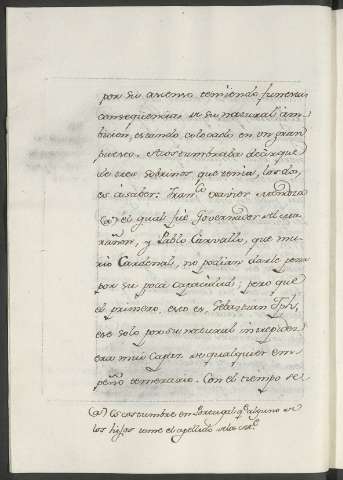 por su ascenso temiendo funestas
consequencias de su natural am-
bicion, estando colocado en un gran
puesto. Acostumbraba decir que
de tres sobrinos que tenia, los dos,
es à saber: Fran.co Xavier Mendoza
(a) el qual fué Governador del Ma-
rañon, y Pablo Carvallo, que mu-
rió Cardenal, no podian darle pena
por su poca capacidad; pero que
el primero, esto es, Sebastian Jph,
ese solo por su natural intrepidez
era mui capaz de qualquier em-
peño temerario. Con el tiempo se
(a) Es costumbre en Portugal q.e alguno de
los hijos tome el apellido de la